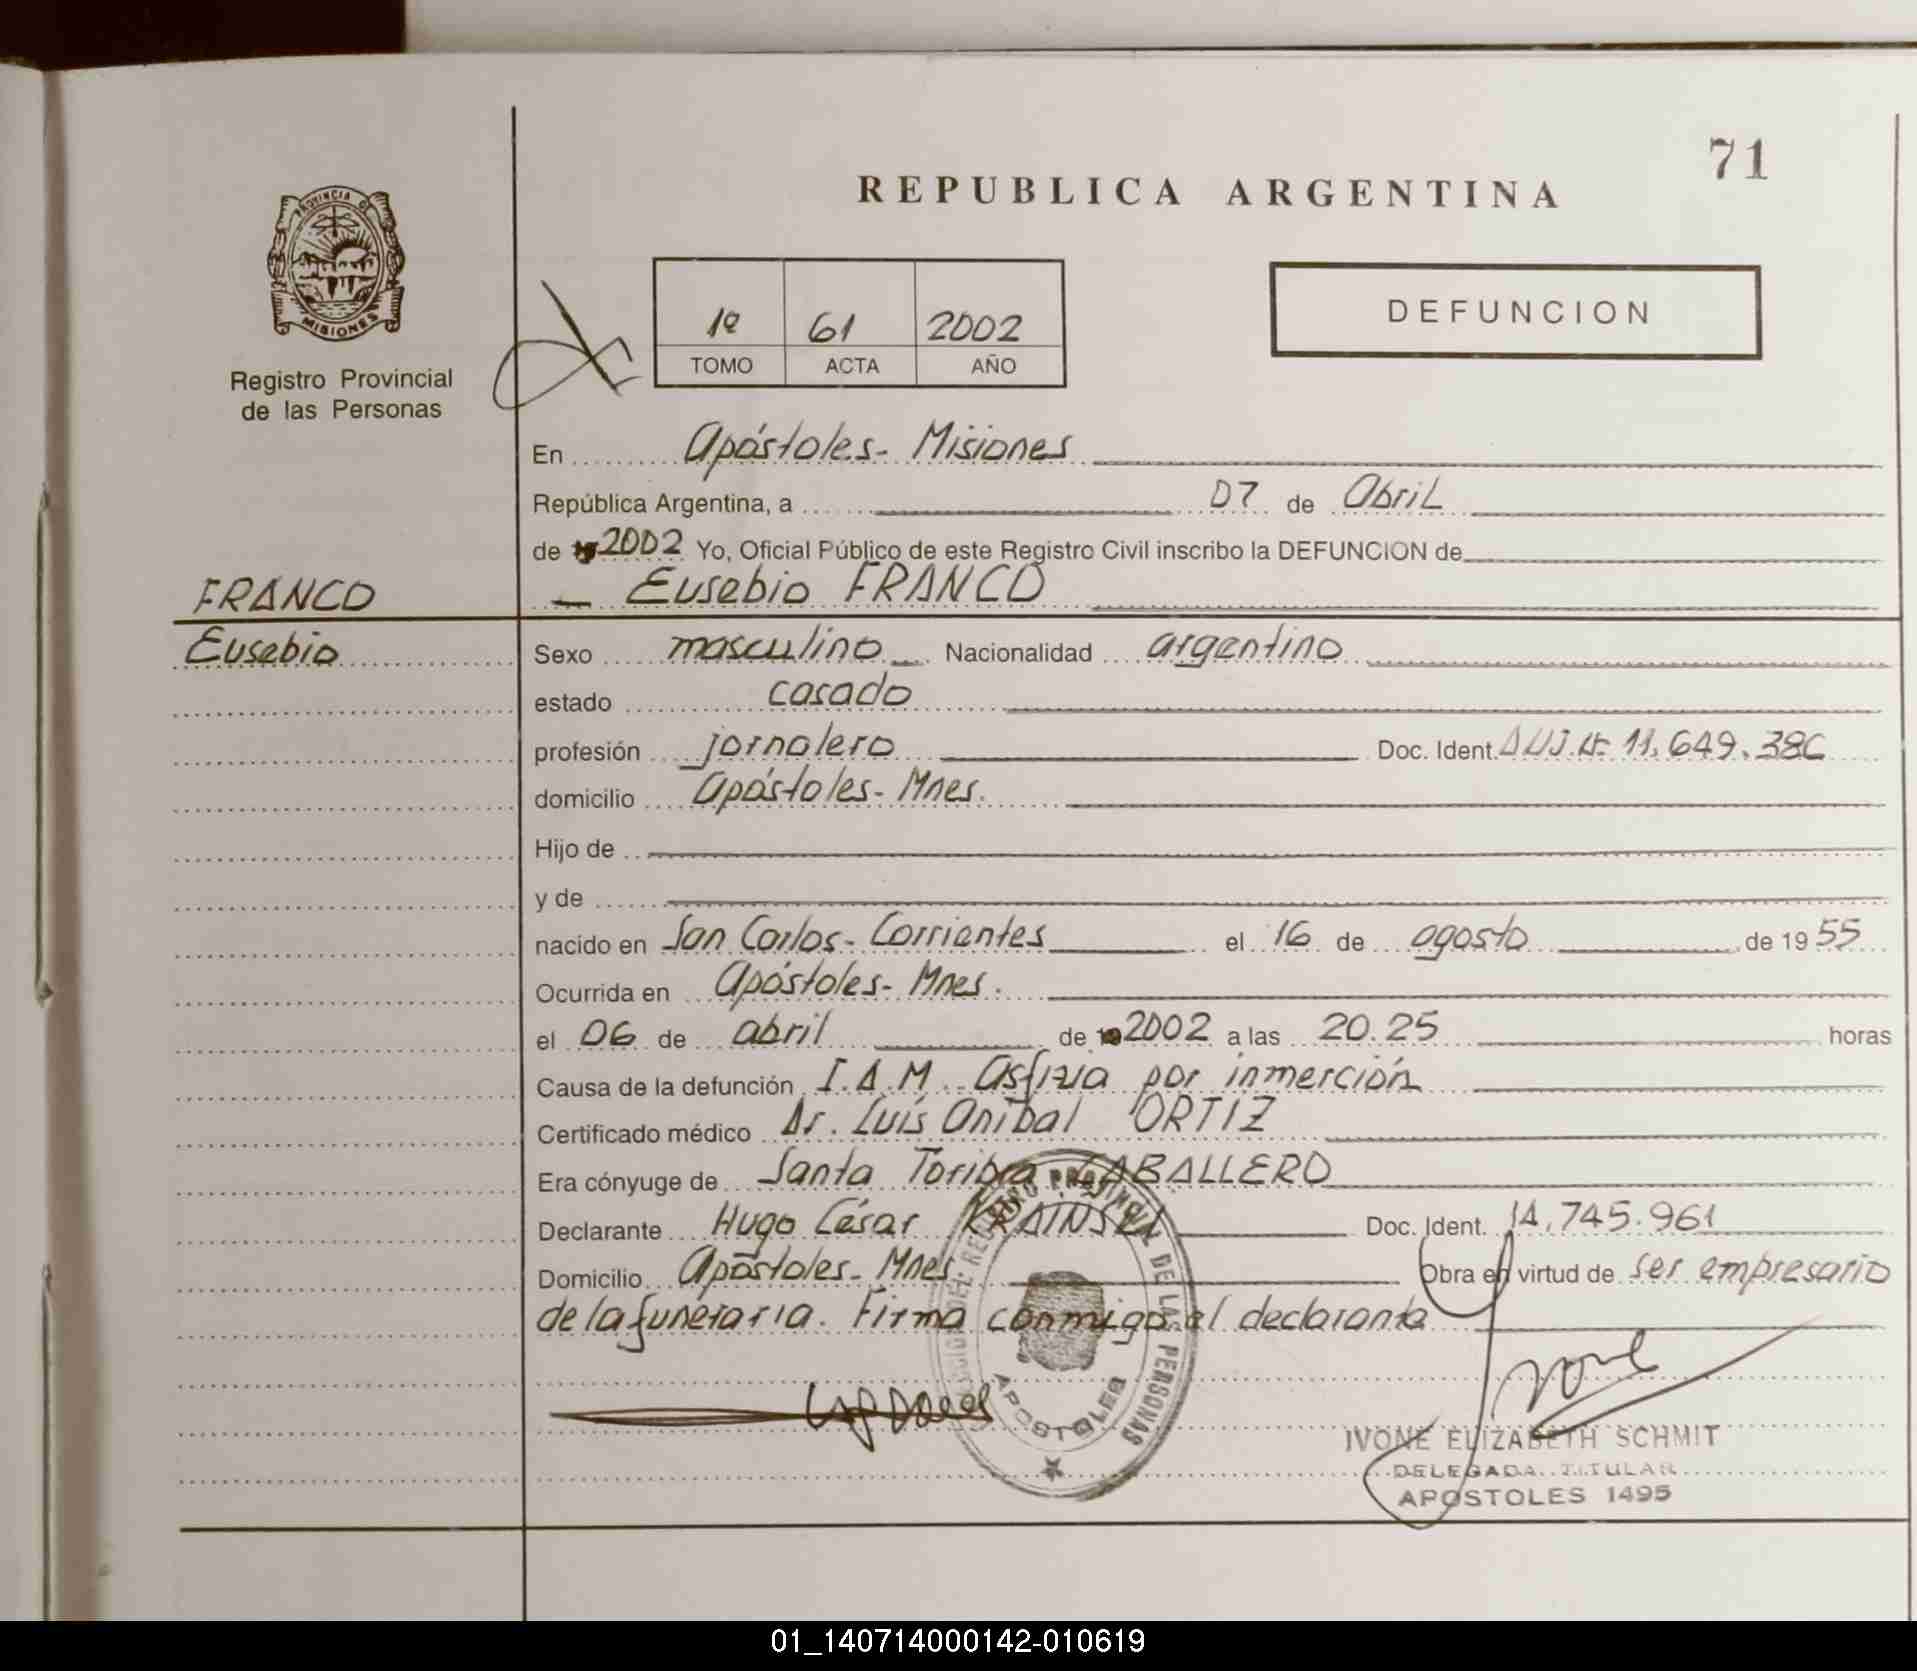 71
REPUBLICA ARGENTINA
PROVINCIA DE
MISIONES
Registro Provincial
de las Personas
1º 61 2002
TOMO ACTA AÑO
DEFUNCION
En Apóstoles - Misiones
República Argentina, a 07 de Abril
de 2002 Yo, Oficial Público de este Registro Civil inscribo la DEFUNCION de
FRANCO Eusebio FRANCO
Eusebio Sexo masculino Nacionalidad argentino
estado casado
profesión jornalero Doc. Ident. 11.649.386
domicilio Apóstoles - Mnes.
Hijo de
y de
nacido en San Carlos - Corrientes el 16 de agosto de 1955
Ocurrida en Apóstoles - Mnes.
el 06 de abril de 2002 a las 20.25 horas
Causa de la defunción I.A.M. Asfixia por inmerción
Certificado médico Dr. Luís Aníbal ORTIZ
Era cónyuge de Santa Toribia CABALLERO
Declarante Hugo César Doc. Ident. 14.745.961
Domicilio Apóstoles - Mnes Obra en virtud de ser empresario
de la funeraria. Firma conmigo el declarante
REGISTRO PROVINCIAL DE LAS PERSONAS
APOSTOLES
IVONE ELIZABETH SCHMIT
DELEGADA TITULAR
APOSTOLES 1495
01_140714000142-010619